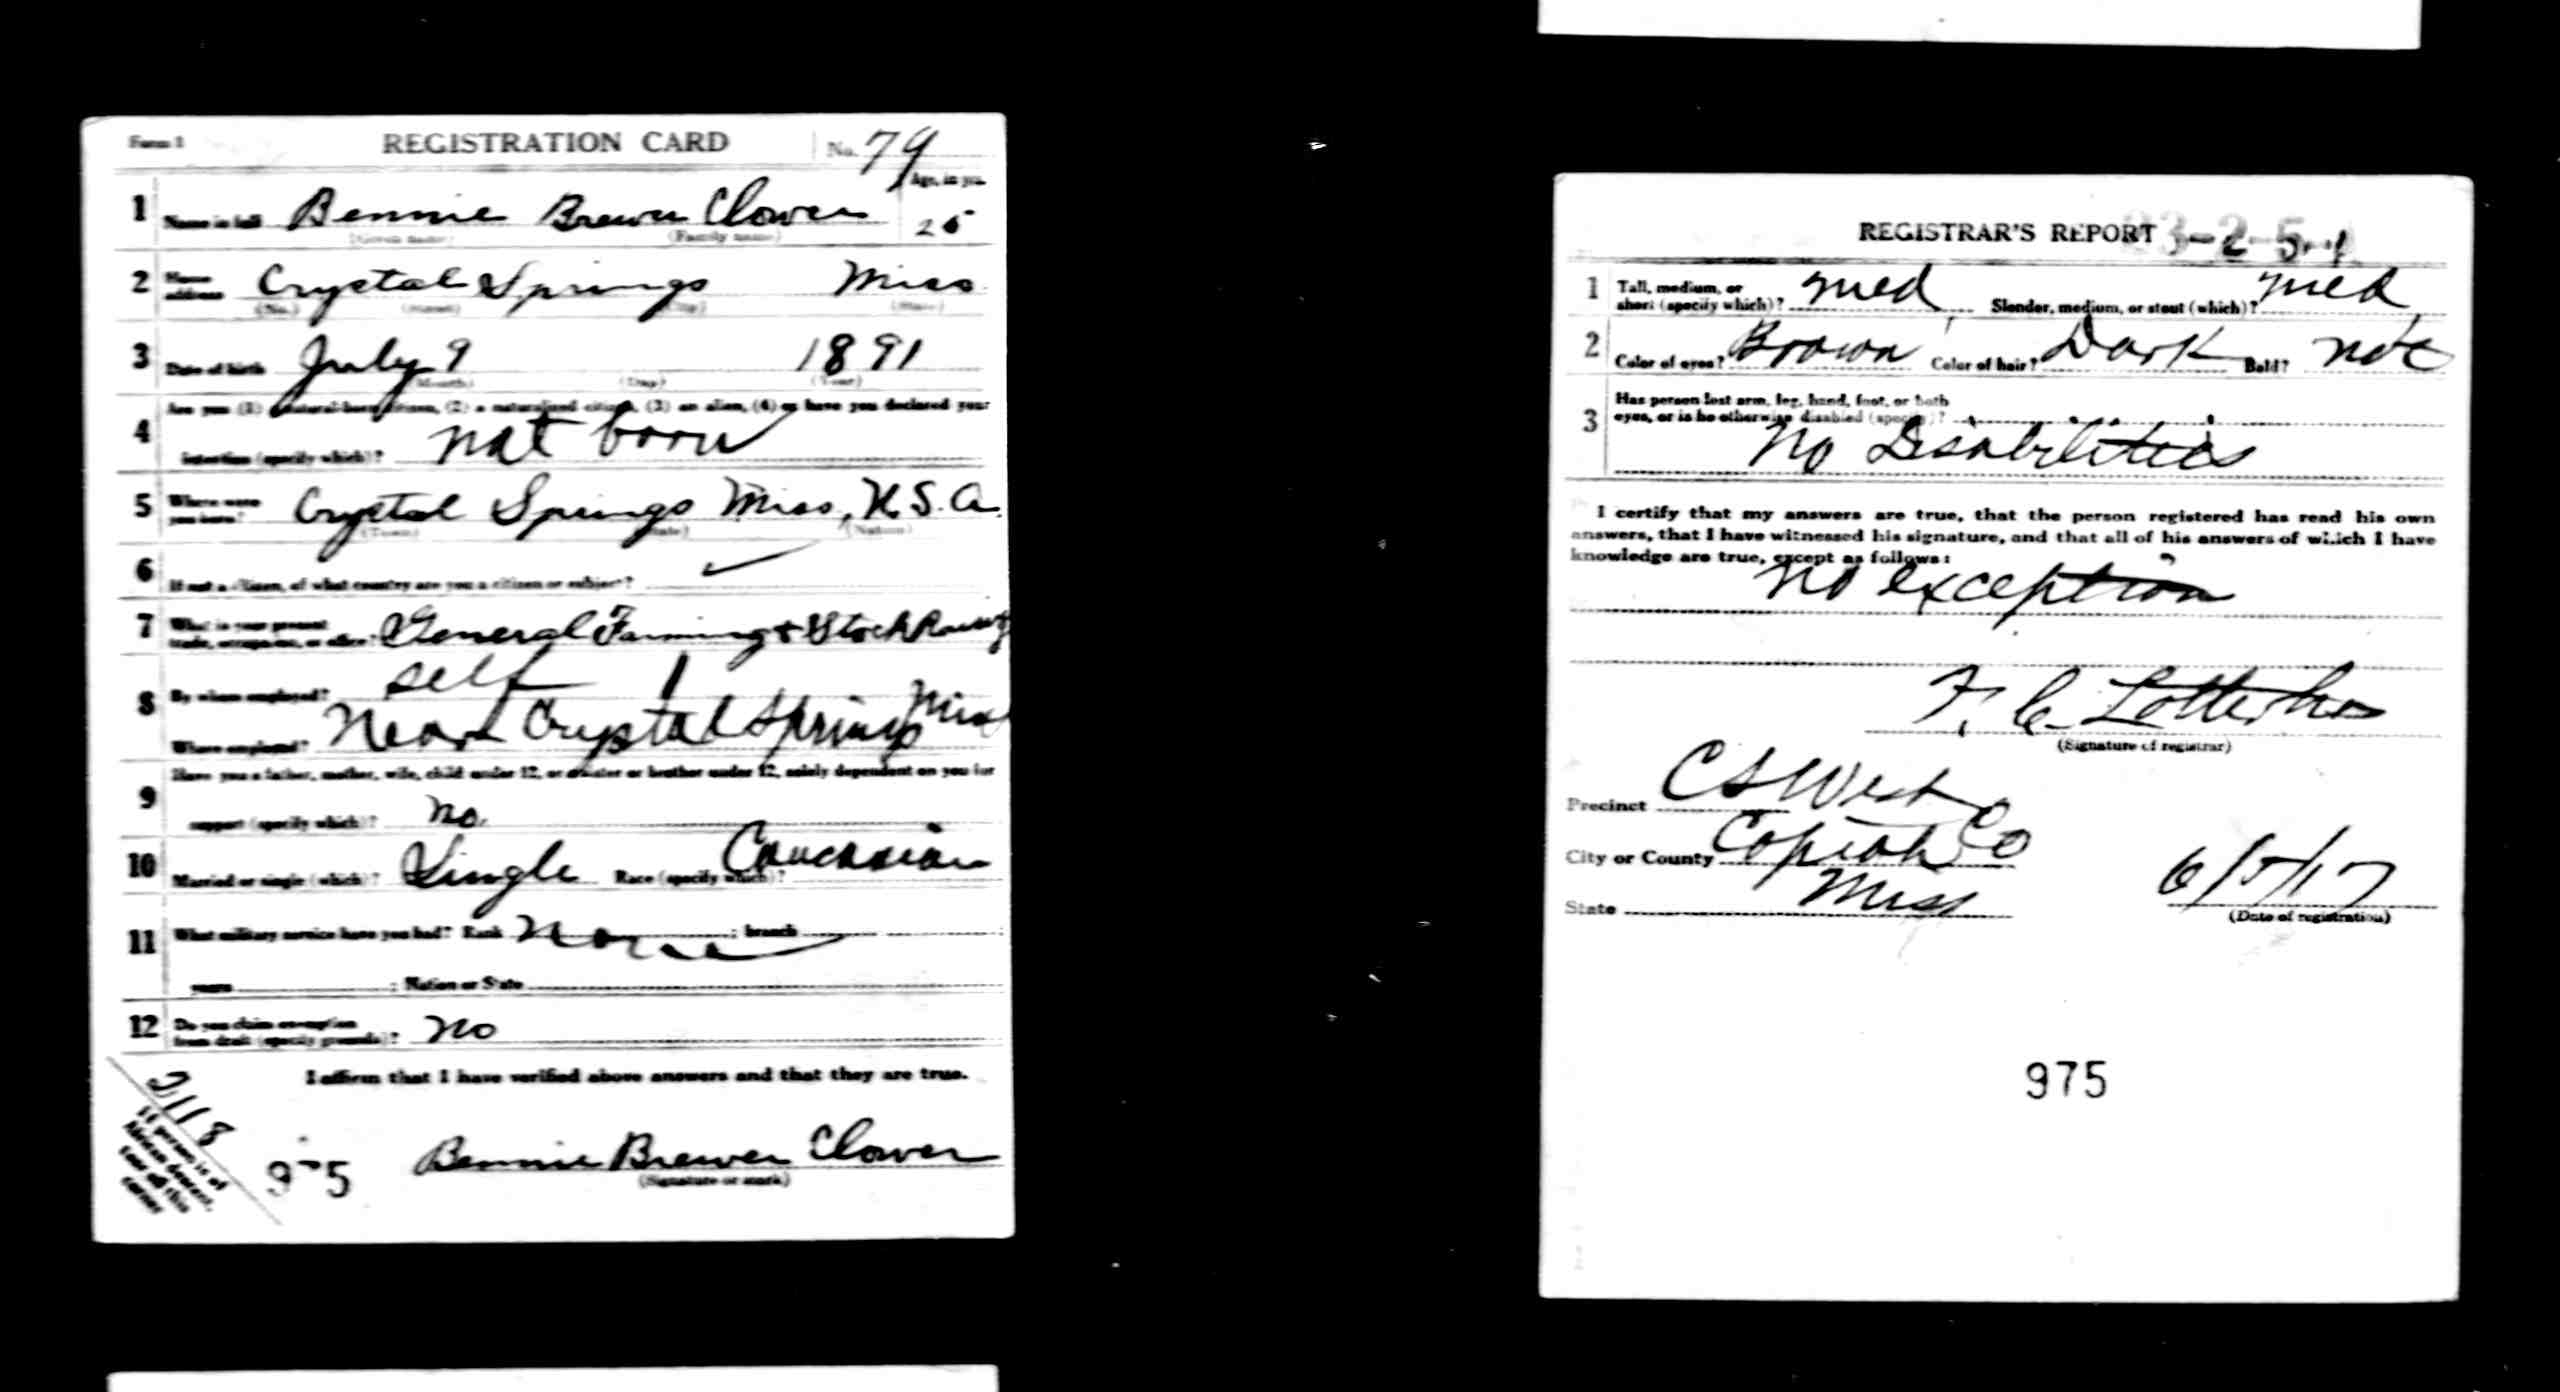 Form 1 REGISTRATION CARD No. 79
Age, in yrs.
1 Name in full Bennie Brewer Clower 25
(Given name) (Family name)
2 Home address Crystal Springs Miss
(No.) (Street) (City) (State)
3 Date of birth July 9 1891
(Month) (Day) (Year)
Are you (1) a natural-born citizen, (2) a naturalized citizen, (3) an alien, (4) or have you declared your
4 intention (specify which)? nat born
5 Where were you born? Crystal Springs Miss, U.S.A.
(Town) (State) (Nation)
6 If not a citizen, of what country are you a citizen or subject?
7 What is your present trade, occupation, or office? General Farming & Stock Raising
8 By whom employed? self
Where employed? Near Crystal Springs Miss
Have you a father, mother, wife, child under 12, or a sister or brother under 12, solely dependent on you for
9 support (specify which)? no.
10 Married or single (which)? Single Race (specify which)? Caucasian
11 What military service have you had? Rank none ; branch
years ; Nation or State
12 Do you claim exemption from draft (specify grounds)? no
I affirm that I have verified above answers and that they are true.
If person is of
African descent,
tear off this
corner
975 Bennie Brewer Clower
(Signature or mark)
REGISTRAR'S REPORT 23-2-5-A
1 Tall, medium, or
short (specify which)? med Slender, medium, or stout (which)? med
2 Color of eyes? Brown Color of hair? Dark Bald? not
Has person lost arm, leg, hand, foot, or both
3 eyes, or is he otherwise disabled (specify)?
No Disabilities
I certify that my answers are true, that the person registered has read his own
answers, that I have witnessed his signature, and that all of his answers of which I have
knowledge are true, except as follows:
no exception
F. C. Lotterhos
(Signature of registrar)
Precinct C S West
City or County Copiah Co
State Miss 6/5/17
(Date of registration)
975